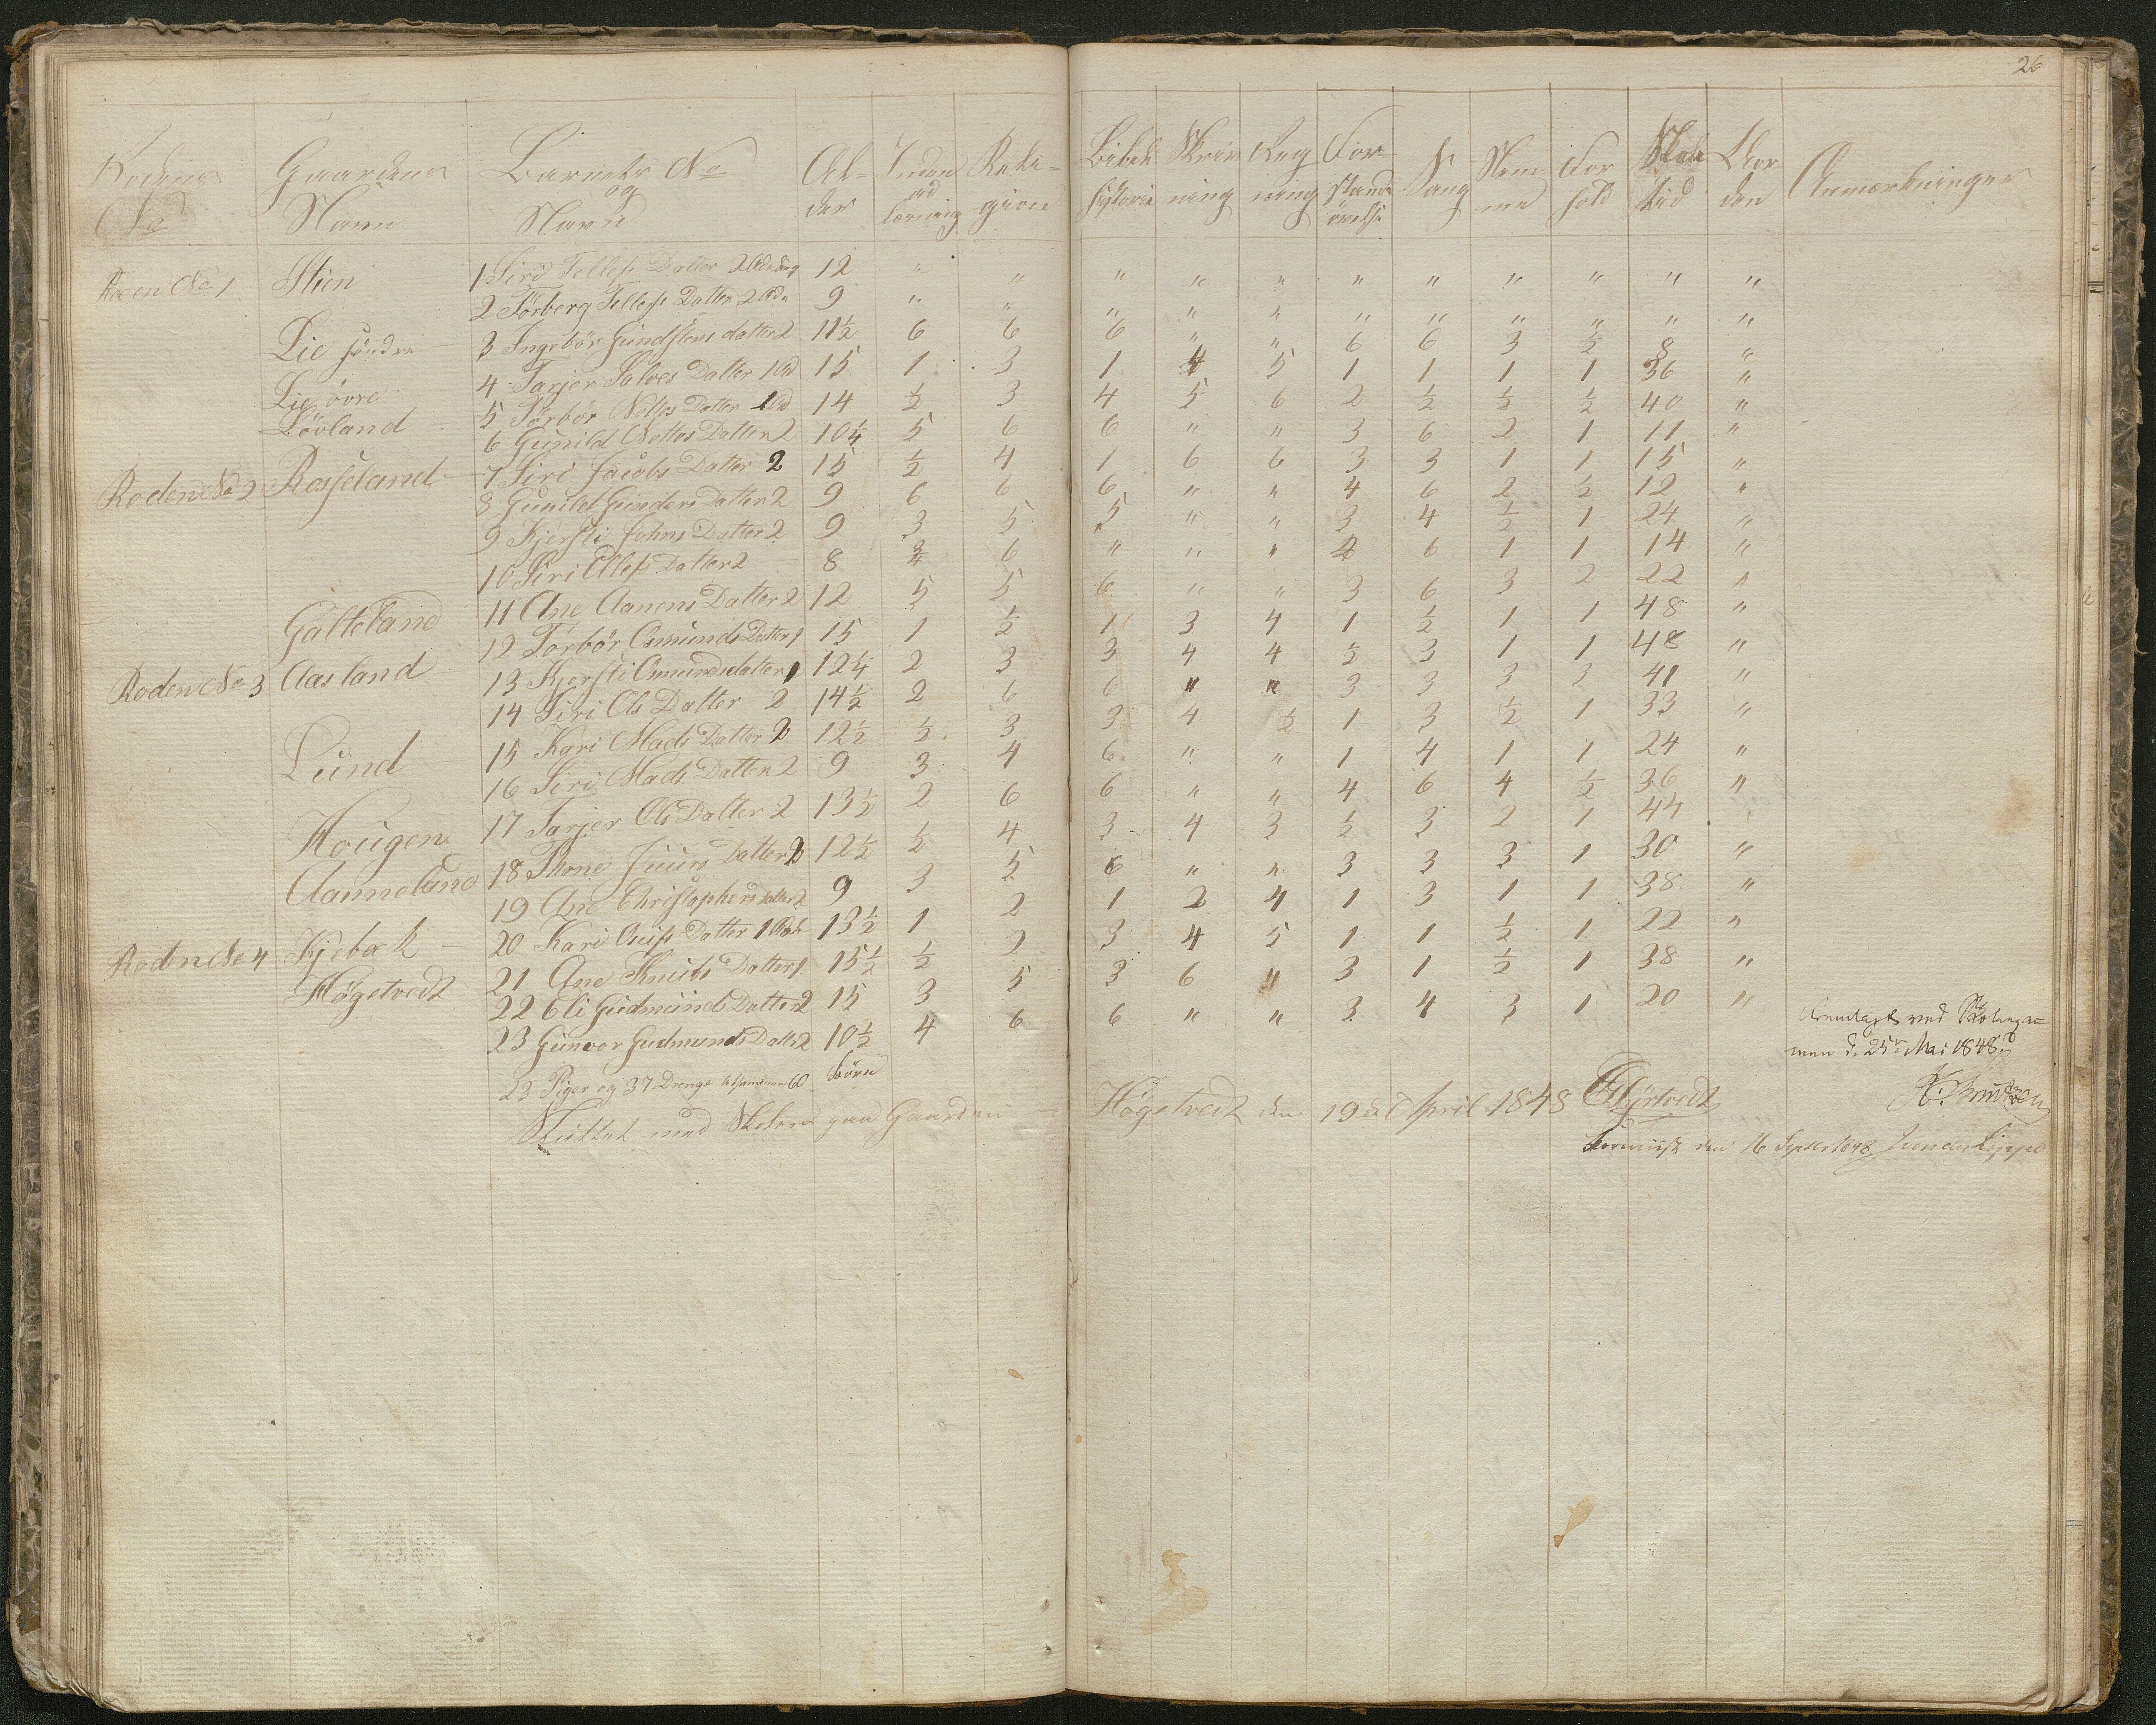 26
Rodens No | Gaardens Navn | Barnets No og Navn | Alder | Inden ad Læsning | Religion | Bibelhistorie | Skrivning | Regning | Forstandsövelse | Sang | Nemme | Forhold | Skoletid | Anmærkninger
Roden No 1 | Stien | 1 Siri Tellefs Datter 2 | 12 | " | " | " | " | " | " | " | " | " | " | "
2 Törberg Tellefs Datter 2 | 9 | " | " | " | " | " | " | " | " | " | " | "
Lie söndre | 3 Ingebör Gundstens datter 2 | 11½ | 6 | 6 | 6 | " | " | 6 | 6 | 3 | ½ | 8 | "
Lie övre | 4 Tarjer Salves Datter 1 | 15 | 1 | 3 | 1 | 4 | 5 | 1 | 1 | 1 | 1 | 36 | "
Lövland | 5 Törbör Datter 1 | 14 | ½ | 3 | 4 | 5 | 6 | 2 | ½ | ½ | ½ | 40 | "
6 Gunild Datter 2 | 10¼ | 5 | 6 | 6 | " | " | 3 | 6 | 2 | 1 | 11 | "
Roden No 2 | Rosseland | 7 Siri Jacobs Datter 2 | 15 | ½ | 4 | 1 | 6 | 6 | 3 | 3 | 1 | 1 | 15 | "
8 Gunild Gunders Datter 2 | 9 | 6 | 6 | 6 | " | " | 4 | 6 | 2 | ½ | 12 | "
9 Kjersti Johns Datter 2 | 9 | 3 | 5 | 5 | " | " | 3 | 4 | ½ | 1 | 24 | "
10 Siri Ollefs Datter 2 | 8 | ¾ | 6 | " | " | " | 4 | 6 | 1 | 1 | 14 | "
Galteland | 11 Ane Aanens Datter 2 | 12 | 5 | 5 | 6 | " | " | 3 | 6 | 3 | 2 | 22 | "
12 Törbör Osmunds Datter 1 | 15 | 1 | ½ | 1 | 3 | 4 | 1 | ½ | 1 | 1 | 48 | "
Roden No 3 | Aasland | 13 Kjersti Osmundsdatter 1 | 12¼ | 2 | 3 | 3 | 4 | 4 | ½ | 3 | 1 | 1 | 48 | "
14 Siri Ols Datter 2 | 14½ | 2 | 6 | 6 | " | " | 3 | 3 | 3 | 3 | 41 | "
Lund | 15 Kari Mads Datter 2 | 12½ | ½ | 3 | 3 | 4 | ½ | 1 | 3 | ½ | 1 | 33 | "
16 Siri Mads Datter 2 | 9 | 3 | 4 | 6 | " | " | 1 | 4 | 1 | 1 | 24 | "
Hougen | 17 Tarjer Ols Datter 2 | 13½ | 2 | 6 | 6 | " | " | 4 | 6 | 4 | ½ | 36 | "
Aanneland | 18 Thone Juurs Datter 2 | 12½ | ½ | 4 | 3 | 4 | 3 | ½ | 3 | 2 | 1 | 44 | "
19 Ane Christophers datter 2 | 9 | 3 | 5 | 6 | " | " | 3 | 3 | 3 | 1 | 30 | "
Roden No 4 | Kjebæk | 20 Kari Datter 1 | 13½ | 1 | 2 | 1 | 2 | 4 | 1 | 3 | 1 | 1 | 38 | "
Högetvedt | 21 Ane Knuds Datter 1 | 15½ | ½ | 2 | 3 | 4 | 5 | 1 | 1 | ½ | 1 | 22 | "
22 Eli Gudmunds Datter 2 | 15 | 3 | 5 | 3 | 6 | " | 3 | 1 | ½ | 1 | 38 | "
23 Gunvor Gudmunds Datter 2 | 10½ | 4 | 6 | 6 | " | " | 3 | 4 | 3 | 1 | 20 | "
23 Piger og 37 Drenge tilsammen 60 Börn
Sluttet med Skolen paa Gaarden Högetvedt den 19de April 1848
Fremlagt ved
men d. 25de Mai 1848.
Foreviist den 16 Septbr 1848